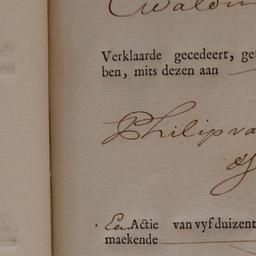 Verklaarde gecedeert, ge
ben, mits dezen aan
Philip va
Een Actie van vyf duizent
maekende